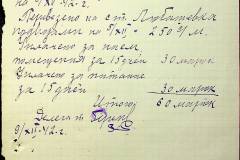 на 9/XII-42 г.
Перевезено на ст. Любашевка
подводами по 9/XII - 250 г/м.
Уплачено за наем
помещения за 15 дней 30 марок
Уплачено за питание
за 15 дней 30 марок
Итого 60 марок
9/XII-42 г.